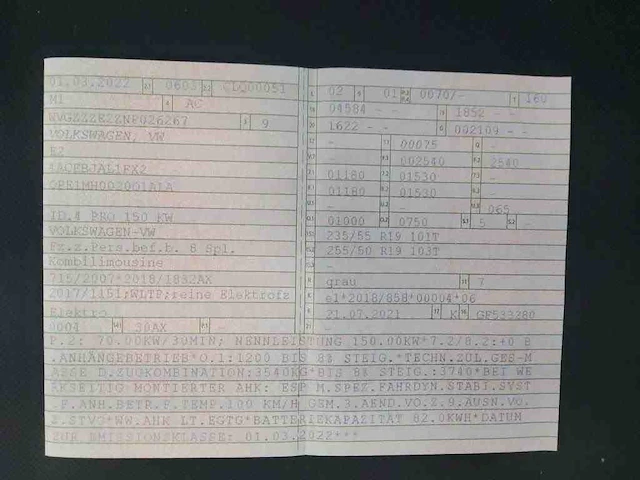 01.03.2022 0603 CDQ00051
M1 AC
WVGZZZE2ZNP026267 9
VOLKSWAGEN, VW
E2
ID.4 PRO 150 KW
VOLKSWAGEN-VW
Fz.z.Pers.bef.b. 8 Spl.
Kombilimousine
715/2007*2018/1832AX
2017/1151;WLTP;reine Elektrofz
Elektro
0004 30AX -
02 01 0070/- 160
04584 - - 1852 - -
1622 - - 002109 - -
- 00075 -
- 002540 2540
01180 01530 -
01180 01530 -
- - 065
01000 0750 5 -
235/55 R19 101T
255/50 R19 103T
-
grau 7
e1*2018/858*00004*06
21.07.2021 K GF533280
P.2: 70.00KW/30MIN; NENNLEISTUNG 150.00KW*7.2/8.2:+0 B
.ANHÄNGEBETRIEB*O.1:1200 BIS 8% STEIG.*TECHN.ZUL.GES-M
ASSE D.ZUGKOMBINATION:3540KG*BIS 8% STEIG.:3740*BEI WE
RKSEITIG MONTIERTER AHK: ESP M.SPEZ.FAHRDYN.STABI.SYST
. F.ANH.BETR.F.TEMP.100 KM/H GSM.3.AEND.VO.Z.9.AUSN.VO.
Z.STVO*WW.AHK LT.EGTG*BATTERIEKAPAZITÄT 82.0KWH*DATUM
ZUR EMISSIONSKLASSE: 01.03.2022***